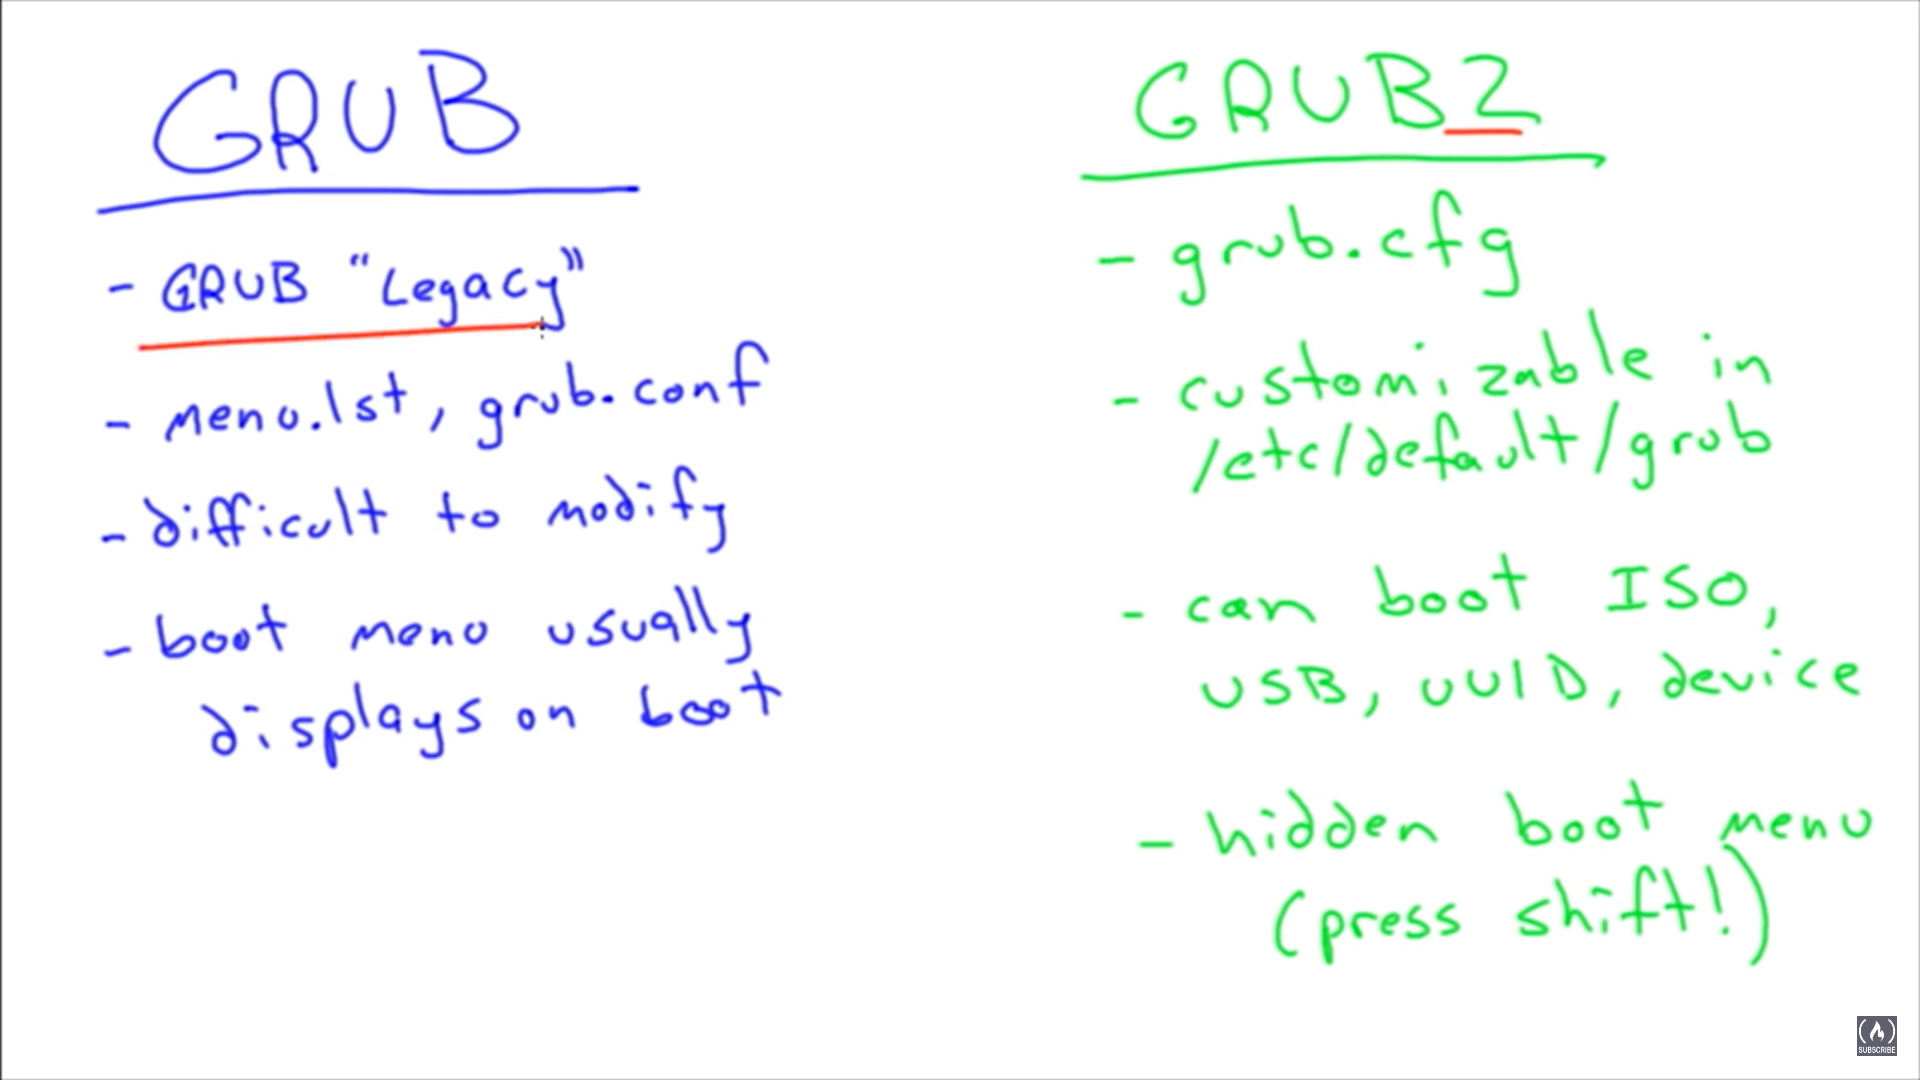 GRUB
- GRUB "Legacy"
- menu.lst, grub.conf
- difficult to modify
- boot menu usually
displays on boot
GRUB2
- grub.cfg
- customizable in
/etc/default/grub
- can boot ISO,
USB, UUID, device
- hidden boot menu
(press shift!)
SUBSCRIBE